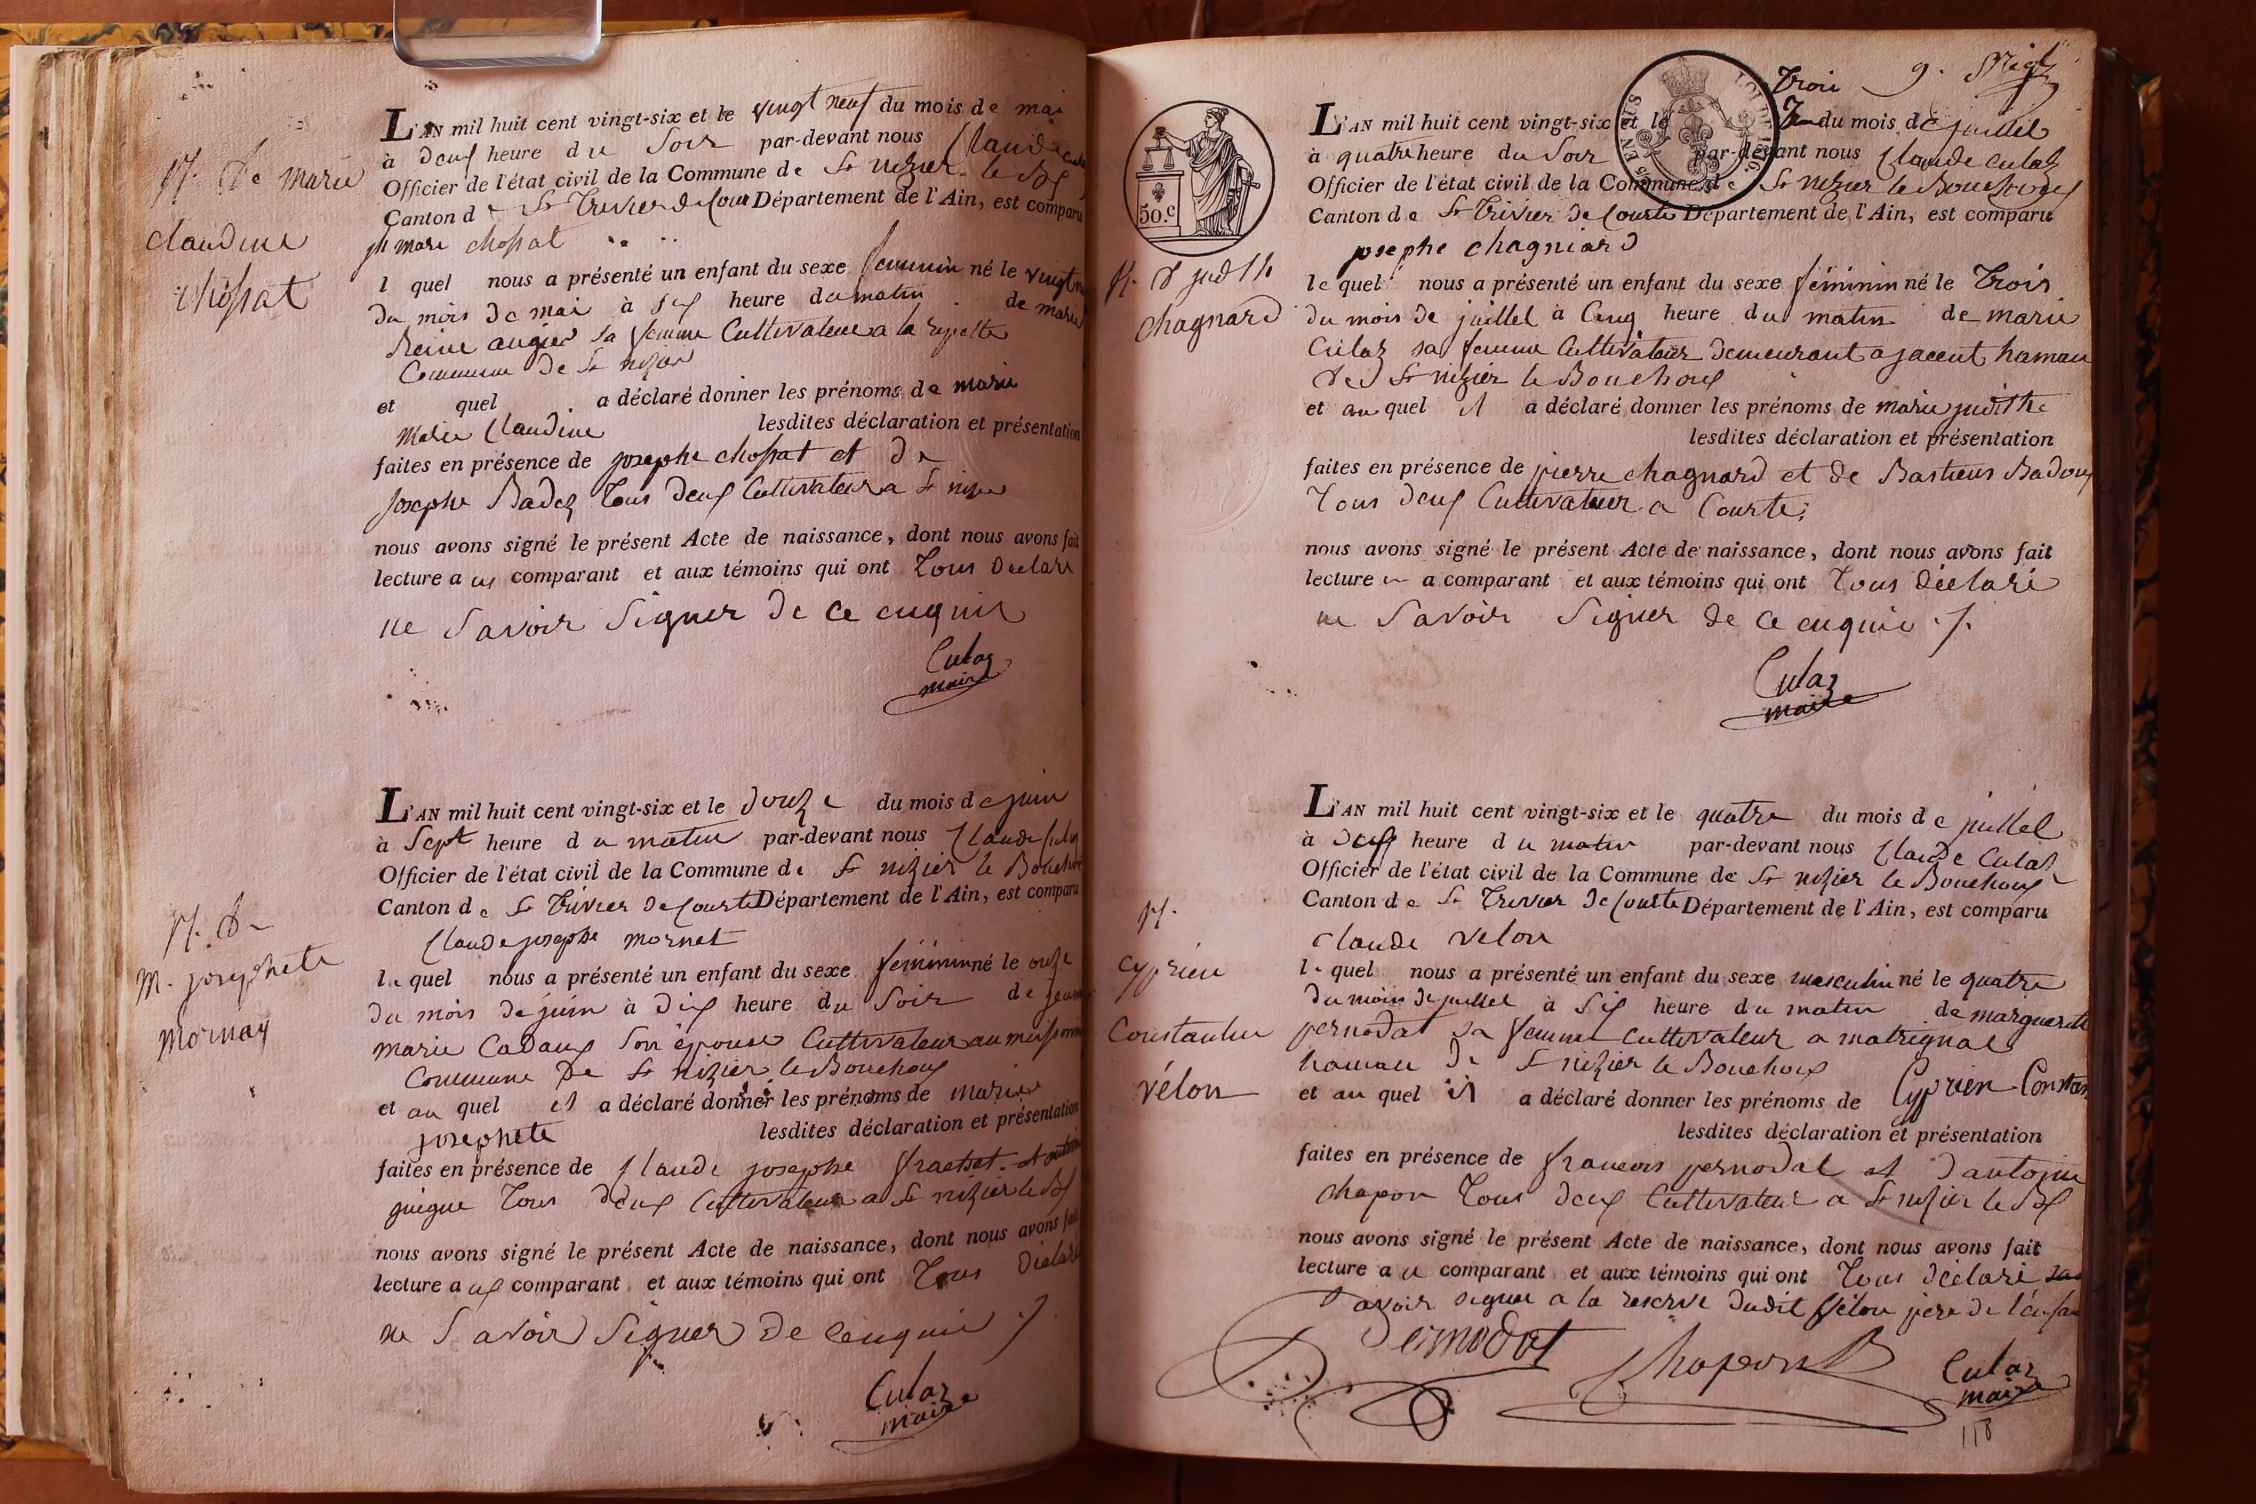 N. de marie
claudine
chossat
L'AN mil huit cent vingt-six et le vingt neuf du mois de mai
à deux heure du soir par-devant nous Claude
Officier de l'état civil de la Commune de St nizier le Bx
Canton de St Trivier de Courte Département de l'Ain, est comparu
jh marie chossat
l quel nous a présenté un enfant du sexe feminin né le vingt
du mois de mai à six heure du matin de marie
Reine augier sa femme Cultivateur a la
Commune de St nizier
et quel a déclaré donner les prénoms de marie
Marie Claudine lesdites déclaration et présentation
faites en présence de josephe chossat et de
josephe Badez tous deux Cultivateur a St nizier
nous avons signé le présent Acte de naissance, dont nous avons fait
lecture a ux comparant et aux témoins qui ont Tous declare
ne Savoir Signer de ce enquis
Culaz
maire
N. de
M. josephete
Mornay
L'AN mil huit cent vingt-six et le douze du mois de juin
à Sept heure du matin par-devant nous Claude Culaz
Officier de l'état civil de la Commune de St nizier le Bouchoux
Canton de St Trivier de Courte Département de l'Ain, est comparu
Claude josephe mornet
le quel nous a présenté un enfant du sexe féminin né le onze
du mois de juin à dix heure du Soir de jeanne
marie Cadaux son épouse Cultivateur au
Commune de St nizier le Bouchoux
et au quel il a déclaré donner les prénoms de marie
josephete lesdites déclaration et présentation
faites en présence de Claude josephe et
guigue Tous deux Cultivateur a St nizier le Bx
nous avons signé le présent Acte de naissance, dont nous avons fait
lecture a ux comparant et aux témoins qui ont Tous déclaré
ne Savoir Signer de ce enquis
Culaz
maire
Trois 9.
50.c
N. d judith
chagnard
L'AN mil huit cent vingt-six et le du mois de juillet
à quatre heure du Soir par-devant nous Claude Culaz
Officier de l'état civil de la Commune de St nizier le Bouchoux
Canton de St Trivier de Courte Département de l'Ain, est comparu
josephe chagniard
le quel nous a présenté un enfant du sexe féminin né le Trois
du mois de juillet à Cinq heure du matin de marie
Culaz sa femme Cultivateur demeurant a jacent hamau
de St nizier le Bouchoux
et au quel il a déclaré donner les prénoms de marie judithe
lesdites déclaration et présentation
faites en présence de pierre chagnard et de Bastiens Badoux
Tous deux Cultivateur a Courte;
nous avons signé le présent Acte de naissance, dont nous avons fait
lecture a comparant et aux témoins qui ont Tous déclaré
ne Savoir Signer de ce enquis
Culaz
maire
N.
cyprien
Constantin
vélon
L'AN mil huit cent vingt-six et le quatre du mois de juillet
à deux heure du matin par-devant nous Claude Culaz
Officier de l'état civil de la Commune de St nizier le Bouchoux
Canton de St Trivier de Courte Département de l'Ain, est comparu
Claude velon
le quel nous a présenté un enfant du sexe masculin né le quatre
du mois de juillet à six heure du matin de marguerite
pernodat sa femme Cultivateur a matrignat
hamau de St nizier le Bouchoux
et au quel il a déclaré donner les prénoms de Cyprien Constan
lesdites déclaration et présentation
faites en présence de francois pernodat et d'antoine
chapon Tous deux Cultivateur a St nizier le Bx
nous avons signé le présent Acte de naissance, dont nous avons fait
lecture a u comparant et aux témoins qui ont Tous déclaré
Savoir signer a la reserve dudit vélon père de l'enfan
Pernodat Chapon Culaz
maire
118